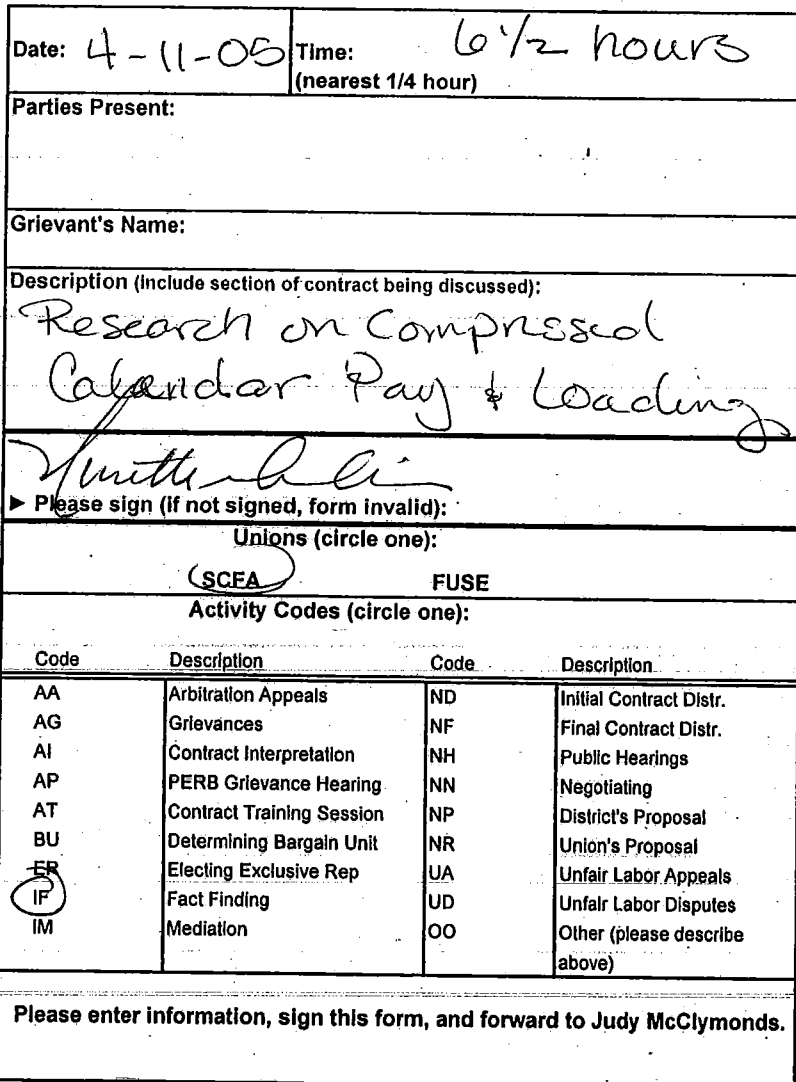 Date: 4-11-05 Time: 6 1/2 hours
(nearest 1/4 hour)
Parties Present:
Grievant's Name:
Description (Include section of contract being discussed):
Research on Compressed
Calendar Pay & Loading
► Please sign (if not signed, form invalid):
Unions (circle one):
SCFA FUSE
Activity Codes (circle one):
Code Description Code Description
AA Arbitration Appeals ND Initial Contract Distr.
AG Grievances NF Final Contract Distr.
AI Contract Interpretation NH Public Hearings
AP PERB Grievance Hearing NN Negotiating
AT Contract Training Session NP District's Proposal
BU Determining Bargain Unit NR Union's Proposal
ER Electing Exclusive Rep UA Unfair Labor Appeals
IF Fact Finding UD Unfair Labor Disputes
IM Mediation OO Other (please describe
above)
Please enter information, sign this form, and forward to Judy McClymonds.